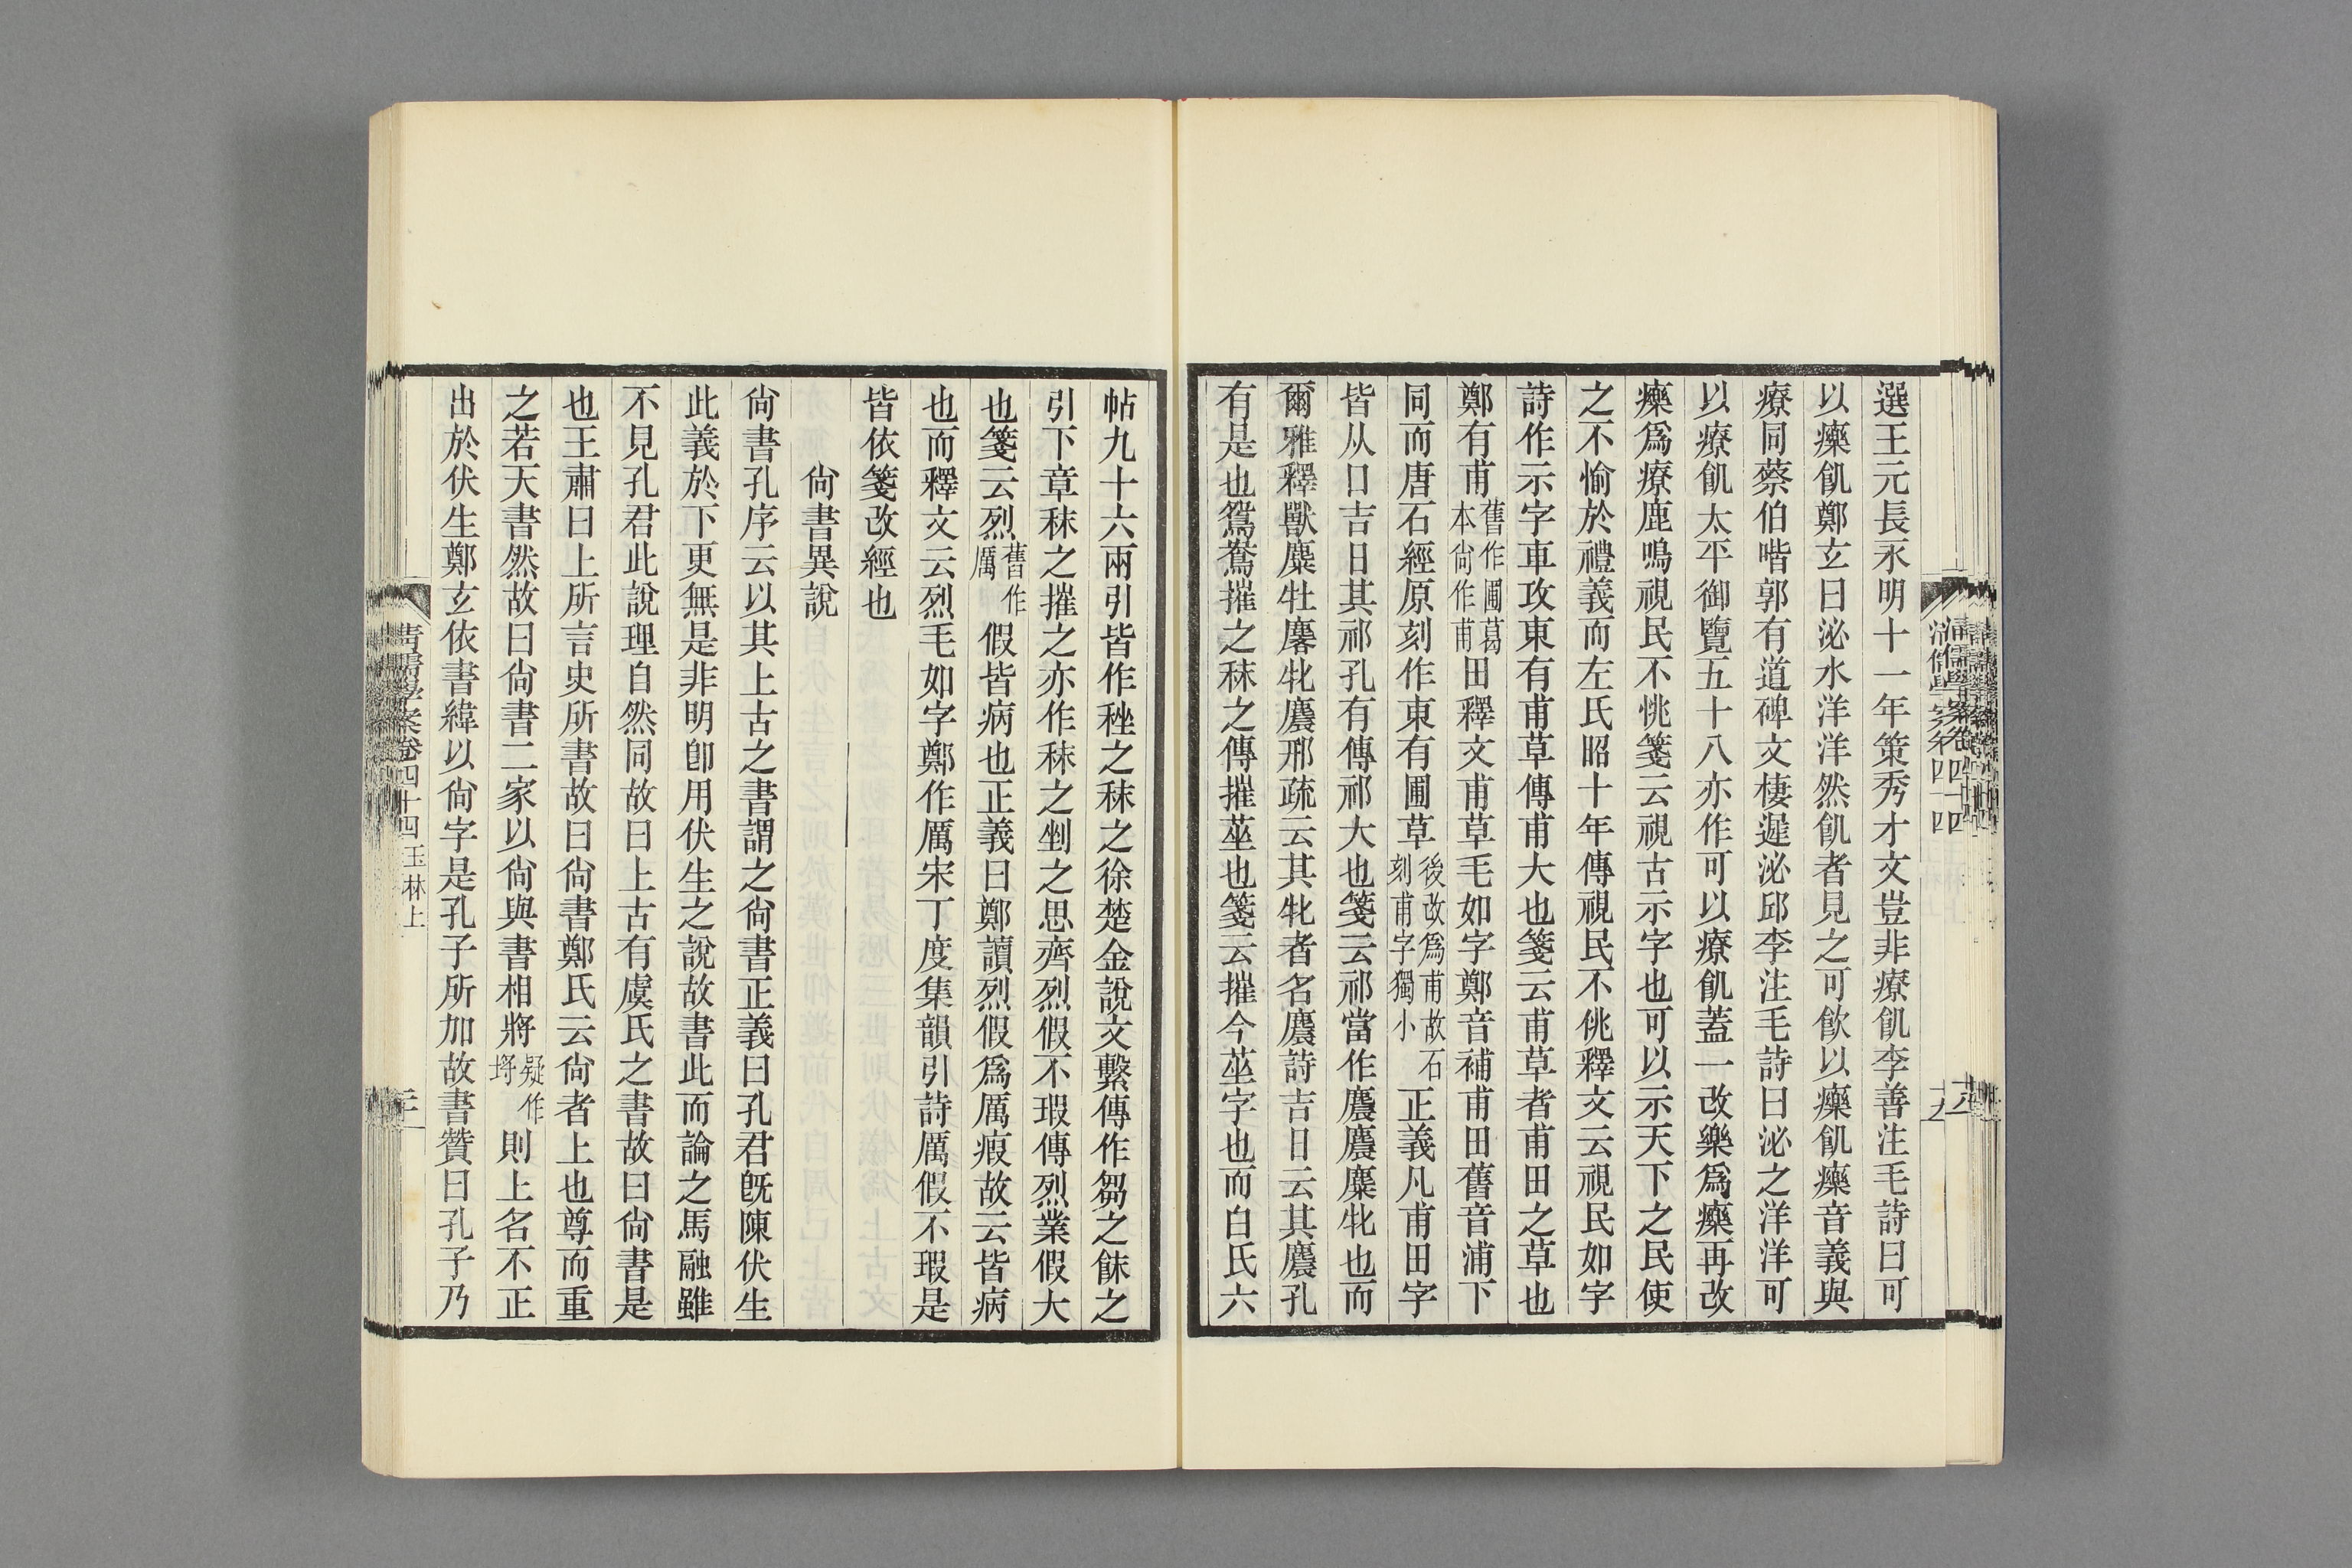 選王元長永明十一年策秀才文豈非療飢李善注毛詩曰可
以𤻲飢鄭玄曰泌水洋洋然飢者見之可飮以𤻲飢𤻲音義與
療同蔡伯喈郭有道碑文棲遲泌邱李注毛詩曰泌之洋洋可
以療飢太平御覽五十八亦作可以療飢蓋一改樂爲𤻲再改
𤻲爲療鹿鳴視民不恌箋云視古示字也可以示天下之民使
之不愉於禮義而左氏昭十年傳視民不佻釋文云視民如字
詩作示字車攻東有甫草傳甫大也箋云甫草者甫田之草也
鄭有甫舊作圃葛本尙作甫田釋文甫草毛如字鄭音補甫田舊音浦下
同而唐石經原刻作東有圃草後改爲甫故石刻甫字獨小正義凡甫田字
皆从口吉日其祁孔有傳祁大也箋云祁當作麎麎麋牝也而
爾雅釋獸麋牡麔牝麎邢疏云其牝者名麎詩吉日云其麎孔
有是也鴛鴦摧之秣之傳摧莝也箋云摧今莝字也而白氏六
帖九十六兩引皆作䂳之秣之徐楚金說文繫傳作芻之餗之
引下章秣之摧之亦作秣之剉之思齊烈假不瑕傳烈業假大
也箋云烈舊作厲假皆病也正義曰鄭讀烈假爲厲瘕故云皆病
也而釋文云烈毛如字鄭作厲宋丁度集韻引詩厲假不瑕是
皆依箋改經也
尙書異說
尙書孔序云以其上古之書謂之尙書正義曰孔君旣陳伏生
此義於下更無是非明卽用伏生之說故書此而論之馬融雖
不見孔君此說理自然同故曰上古有虞氏之書故曰尙書是
也王肅曰上所言史所書故曰尙書鄭氏云尙者上也尊而重
之若天書然故曰尙書二家以尙與書相將疑作埒則上名不正
出於伏生鄭玄依書緯以尙字是孔子所加故書贊曰孔子乃
清儒學案卷四十四玉林上